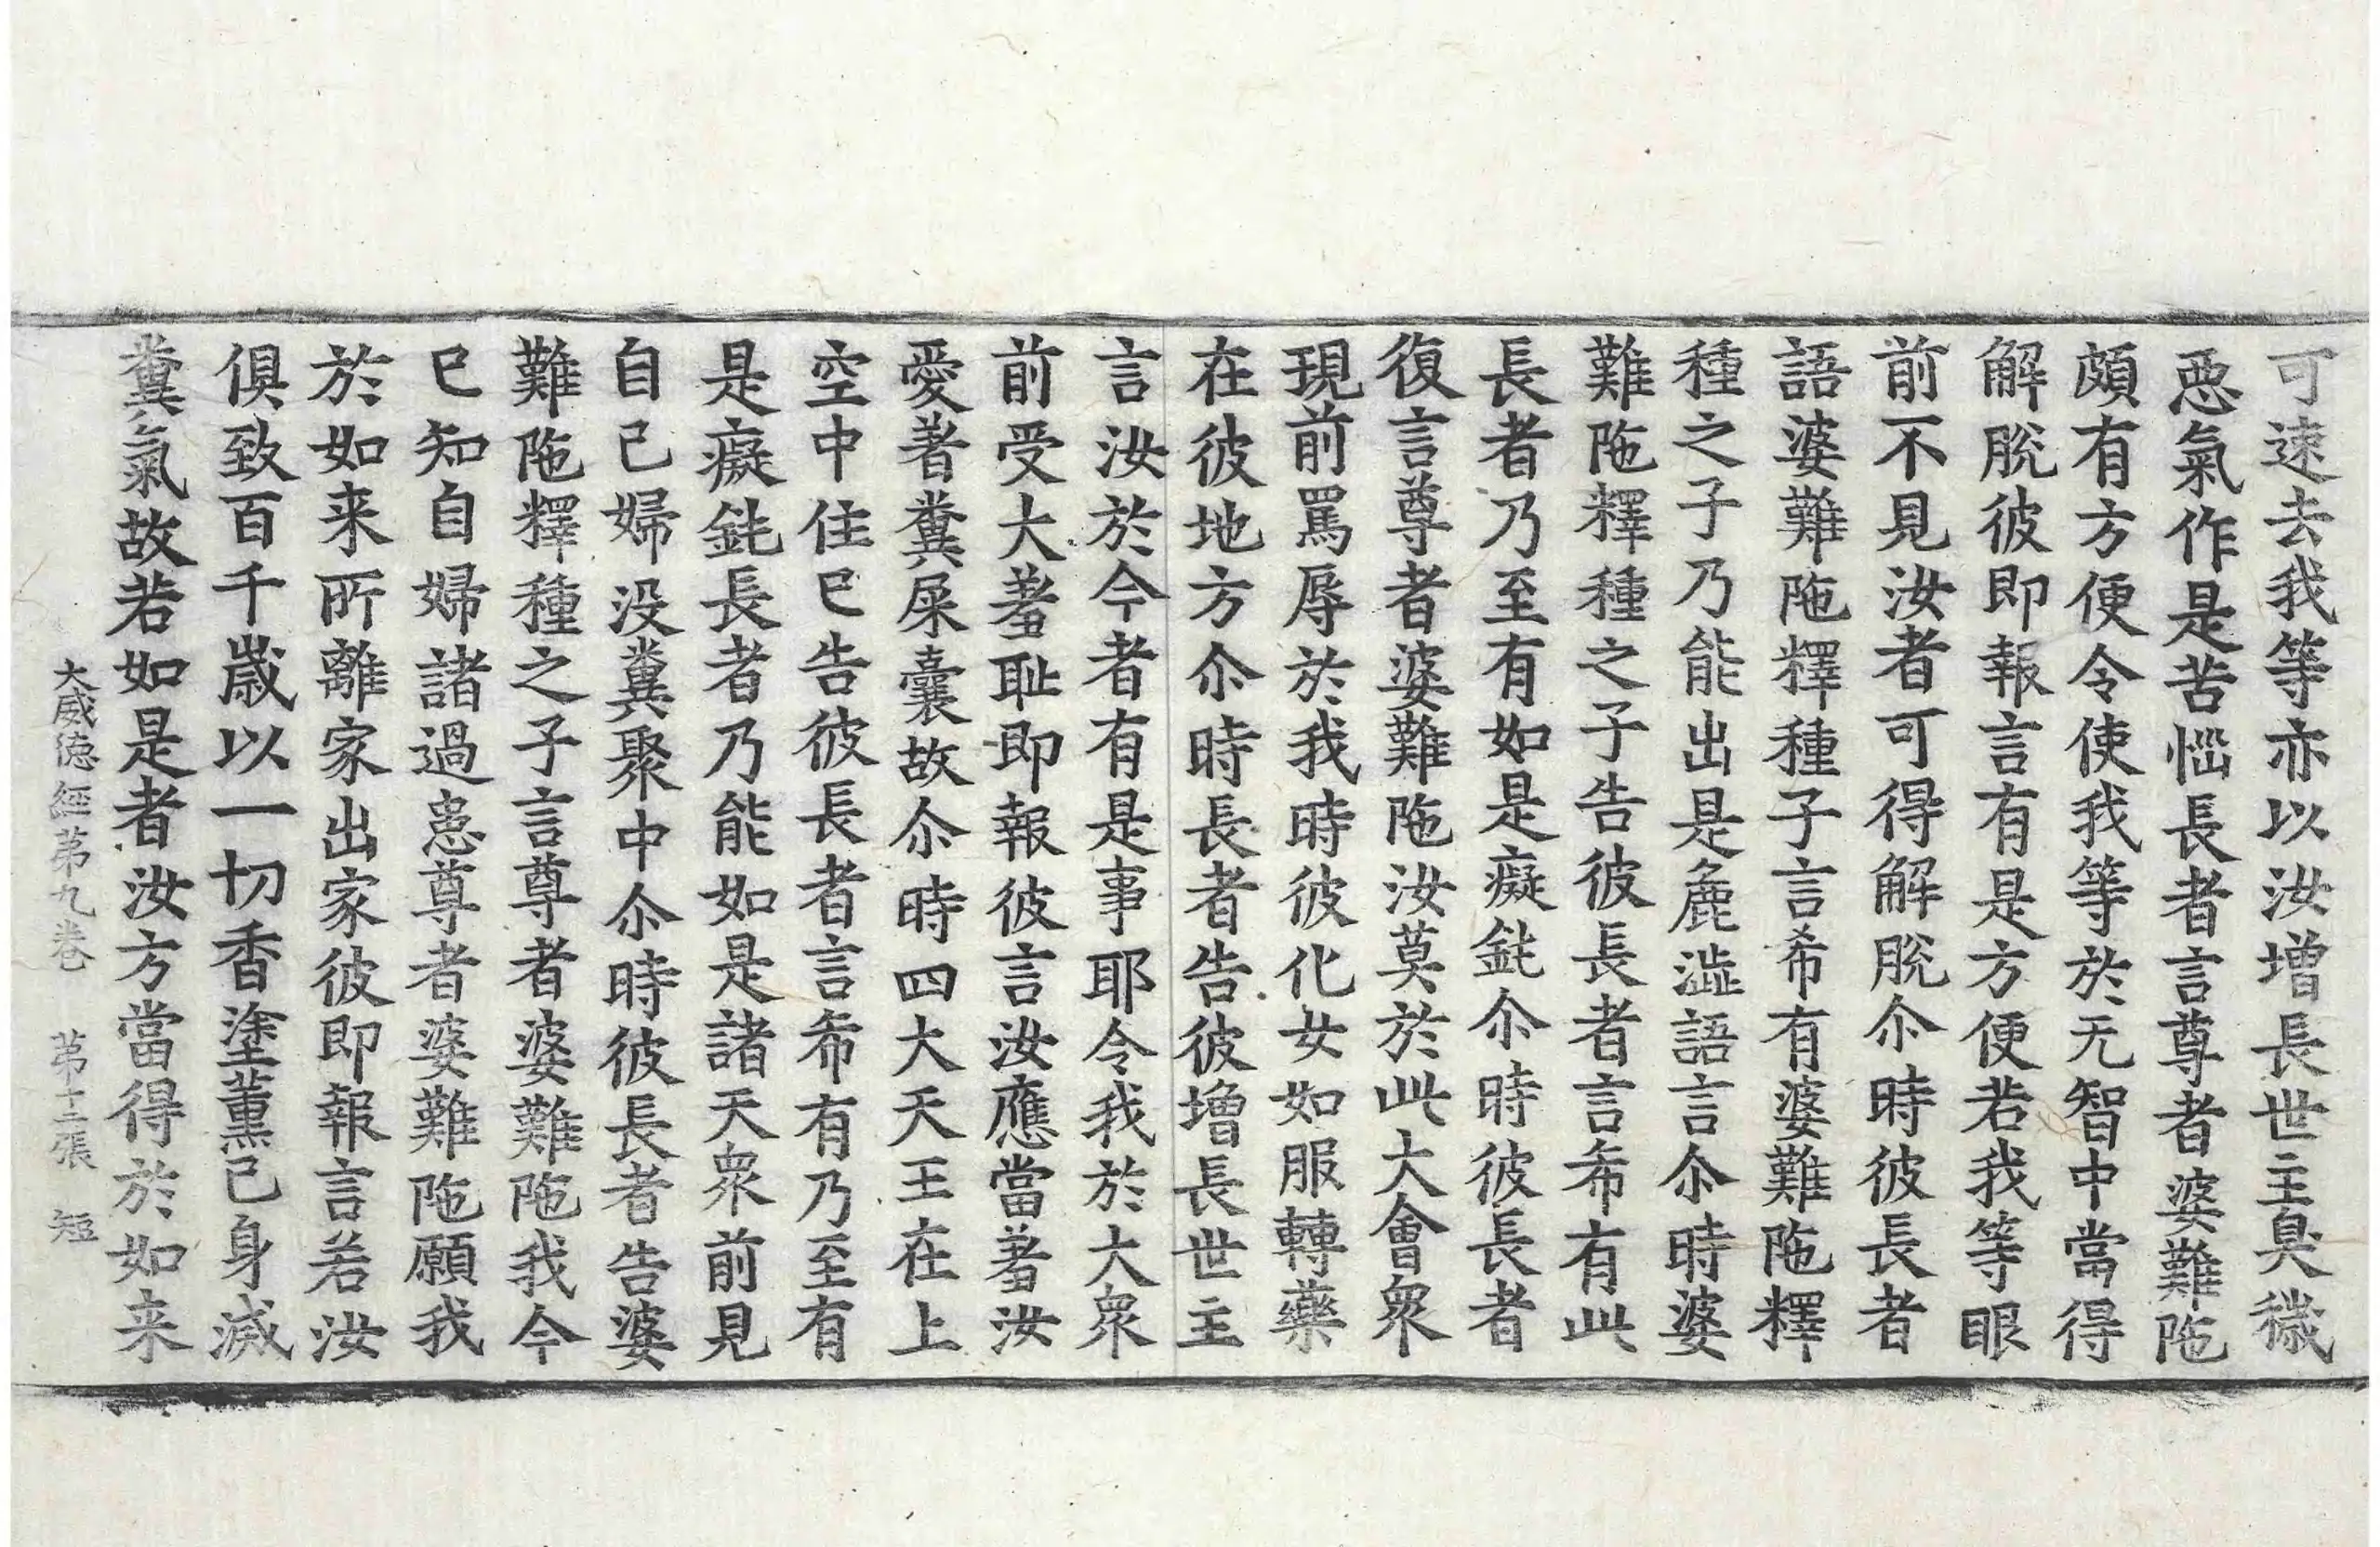 可速去我等亦以汝增長世主臭穢
惡氣作是苦惱長者言尊者婆難陁
頗有方便令使我等於无智中當得
解脫彼即報言有是方便若我等眼
前不見汝者可得解脫尒時彼長者
語婆難陁釋種子言希有婆難陁釋
種之子乃能出是麁澁語言尒時婆
難陁釋種之子告彼長者言希有此
長者乃至有如是癡鈍尒時彼長者
復言尊者婆難陁汝莫於此大會衆
現前罵辱於我時彼化女如服轉藥
在彼地方尒時長者告彼增長世主
言汝於今者有是事耶令我於大衆
前受大羞耻即報彼言汝應當羞汝
愛著糞屎囊故尒時四大天王在上
空中住已告彼長者言希有乃至有
是癡鈍長者乃能如是諸天衆前見
自己婦没糞聚中尒時彼長者告婆
難陁釋種之子言尊者婆難陁我今
已知自婦諸過患尊者婆難陁願我
於如来所離家出家彼即報言若汝
俱致百千歲以一切香塗薰己身滅
糞氣故若如是者汝方當得於如来
大威德經第九卷 第十二張 短